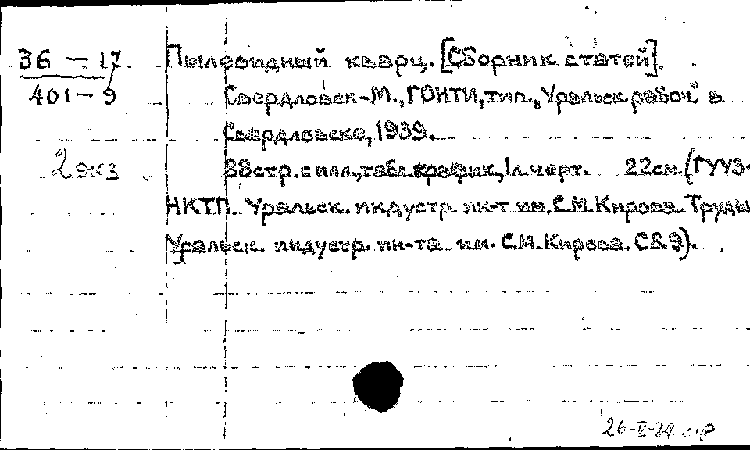 36 — 17. Пылевидный кварц. [Сборник статей].
401 — 9 Свердловск-М., ГОНТИ, тип. „Уральск. рабоч." в
Свердловске, 1939.
2 экз 88 стр. с илл., табл. и график., 1 л. черт. 22 см. (ГУУЗ-
НКТП. Уральск. индустр. ин-т им. С.М. Кирова. Труды
Уральск. индустр. ин-та им. С.М. Кирова. Сб. 9).
26-V-